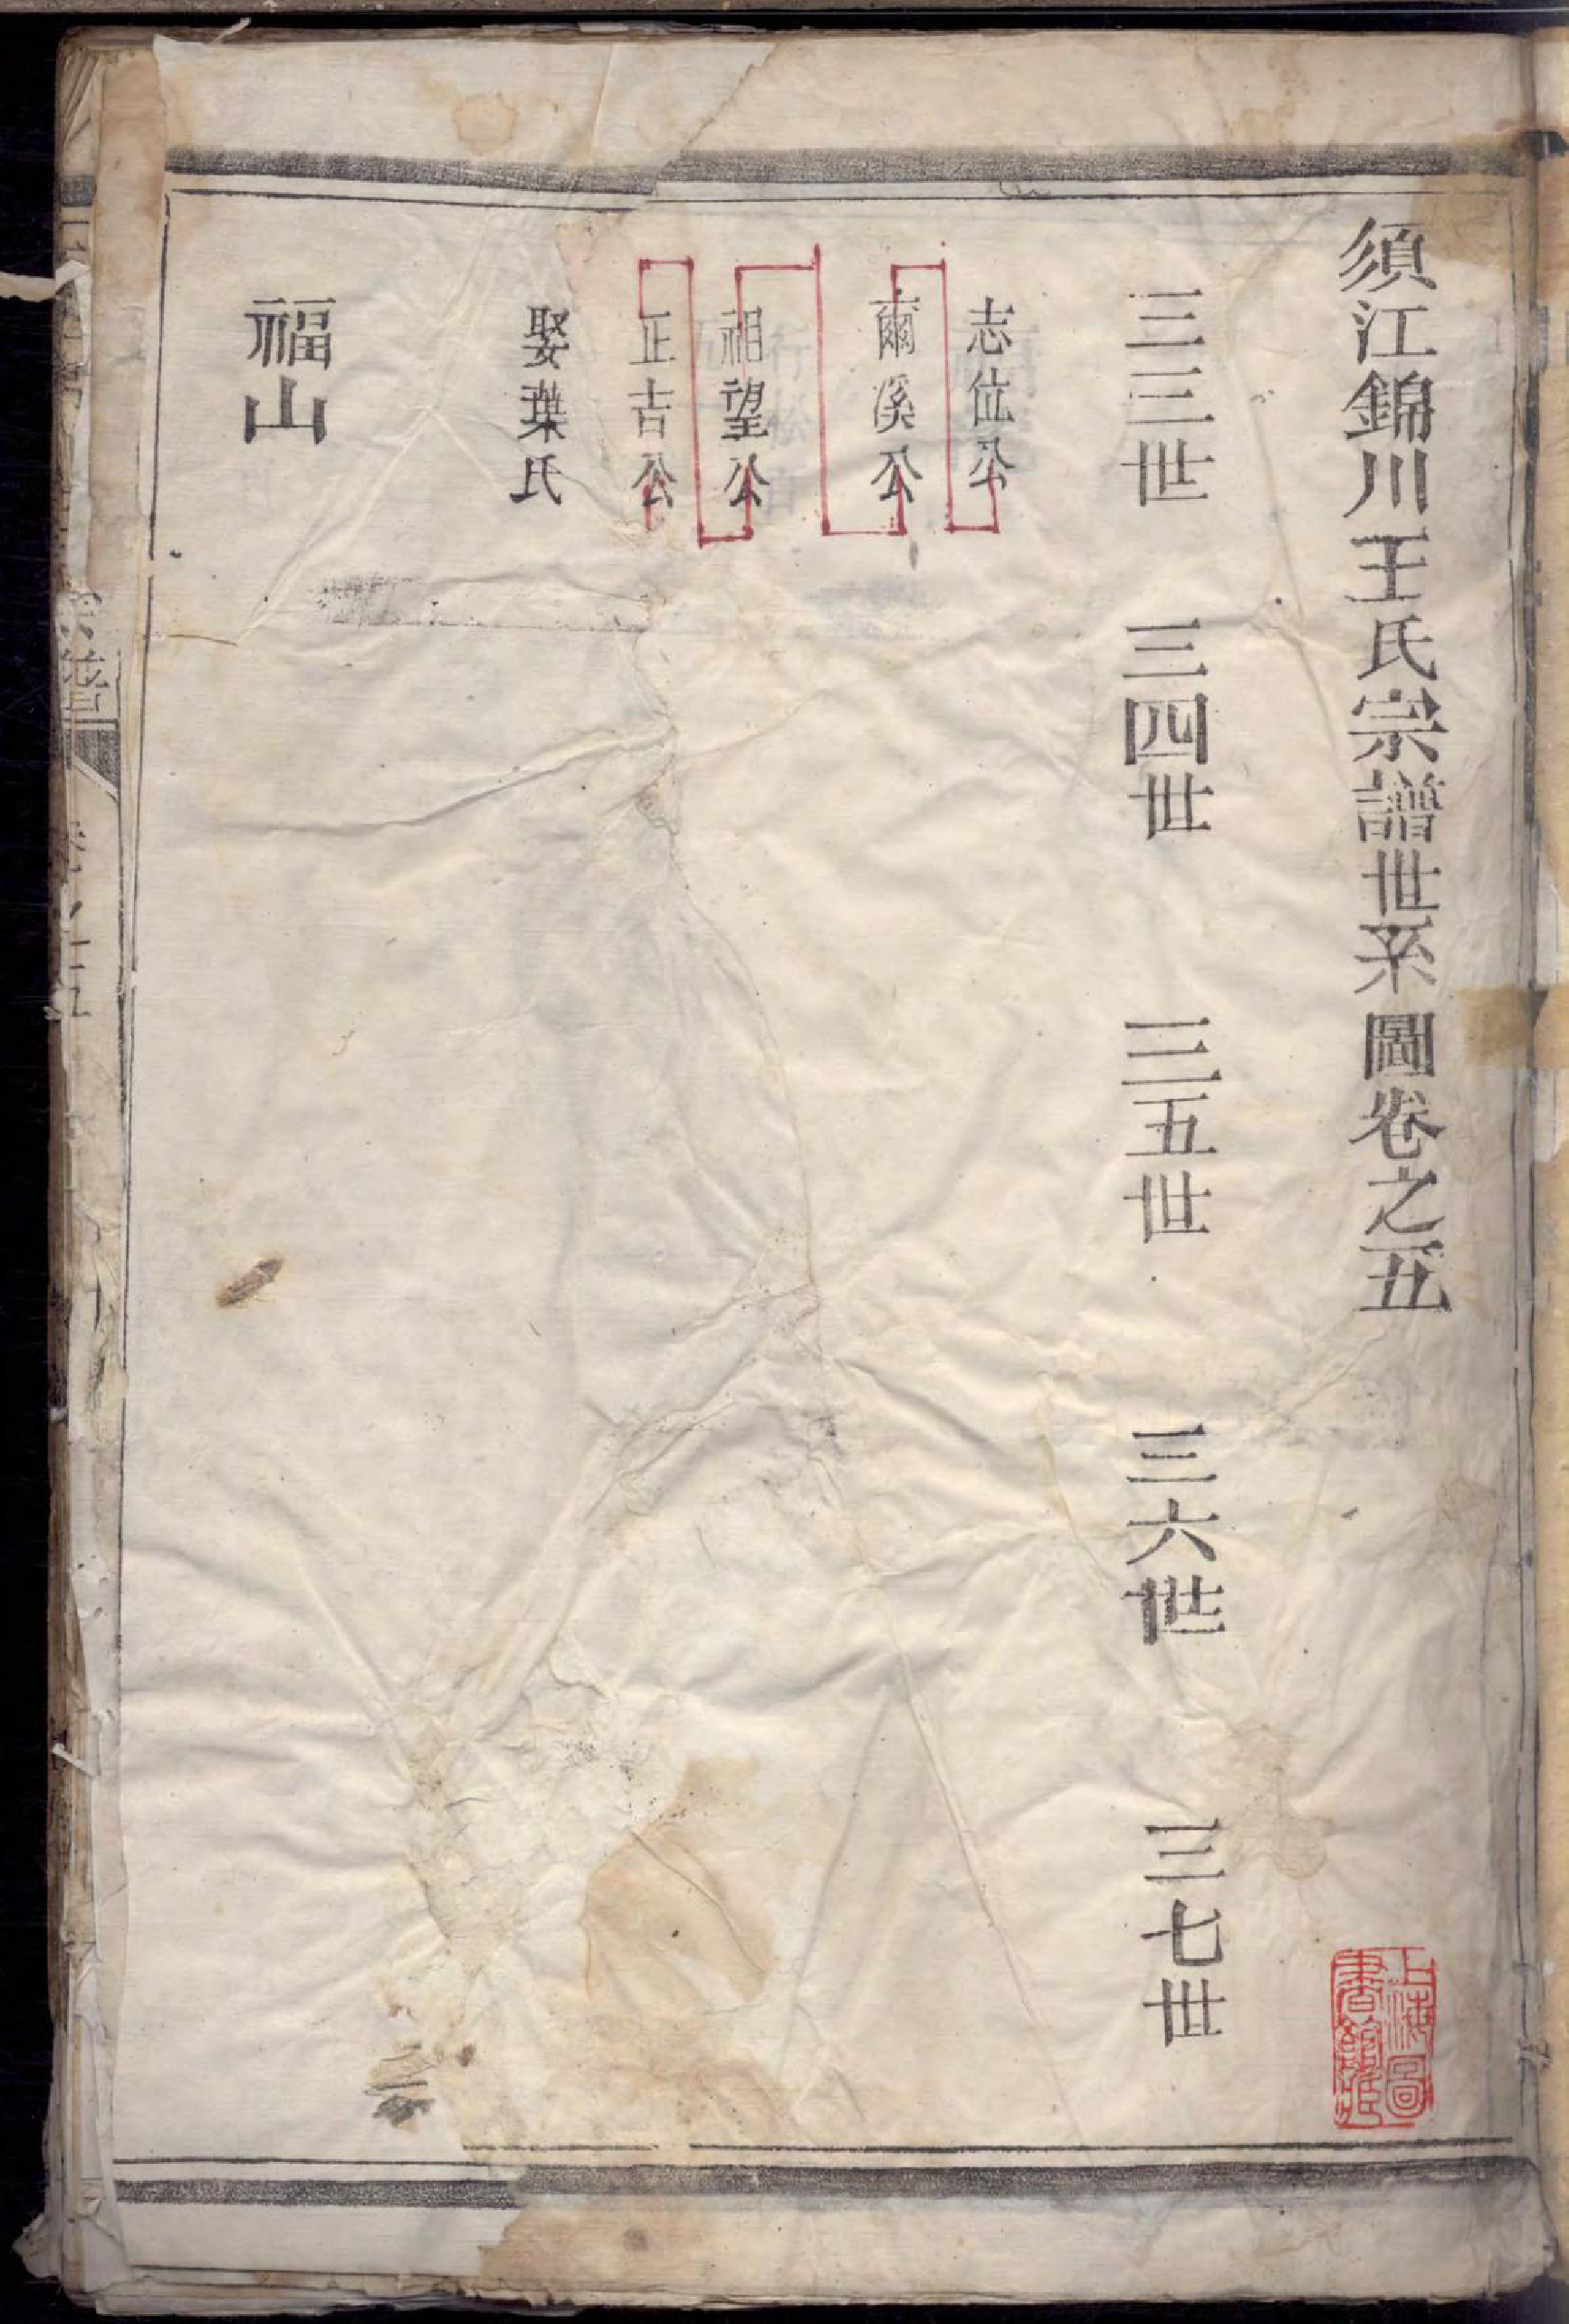 須江錦川王氏宗譜世系圖卷之五
三三世
三四世
三五世
三六世
三七世
志位公
爾溪公
祖望公
正吉公
娶葉氏
福山
上海圖
書館藏